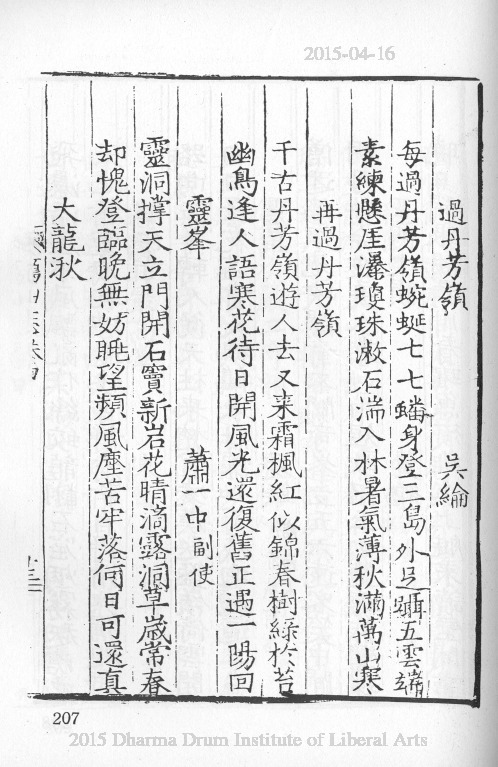 2015-04-16
過丹芳嶺 吳綸
每過丹芳嶺蜿蜒七七蟠身登三島外足躡五雲端
素練懸厓瀑瓊珠漱石湍入林暑氣薄秋滿萬山寒
再過丹芳嶺
千古丹芳嶺遊人去又來霜楓紅似錦春樹綠於苔
幽鳥逢人語寒花待日開風光還復舊正遇一陽回
靈峯 蕭一中副使
靈洞撑天立門開石竇新岩花晴滴露洞草歲常春
却愧登臨晚無妨眺望頻風塵苦牢落何日可還真
大龍湫
207
2015 Dharma Drum Institute of Liberal Arts